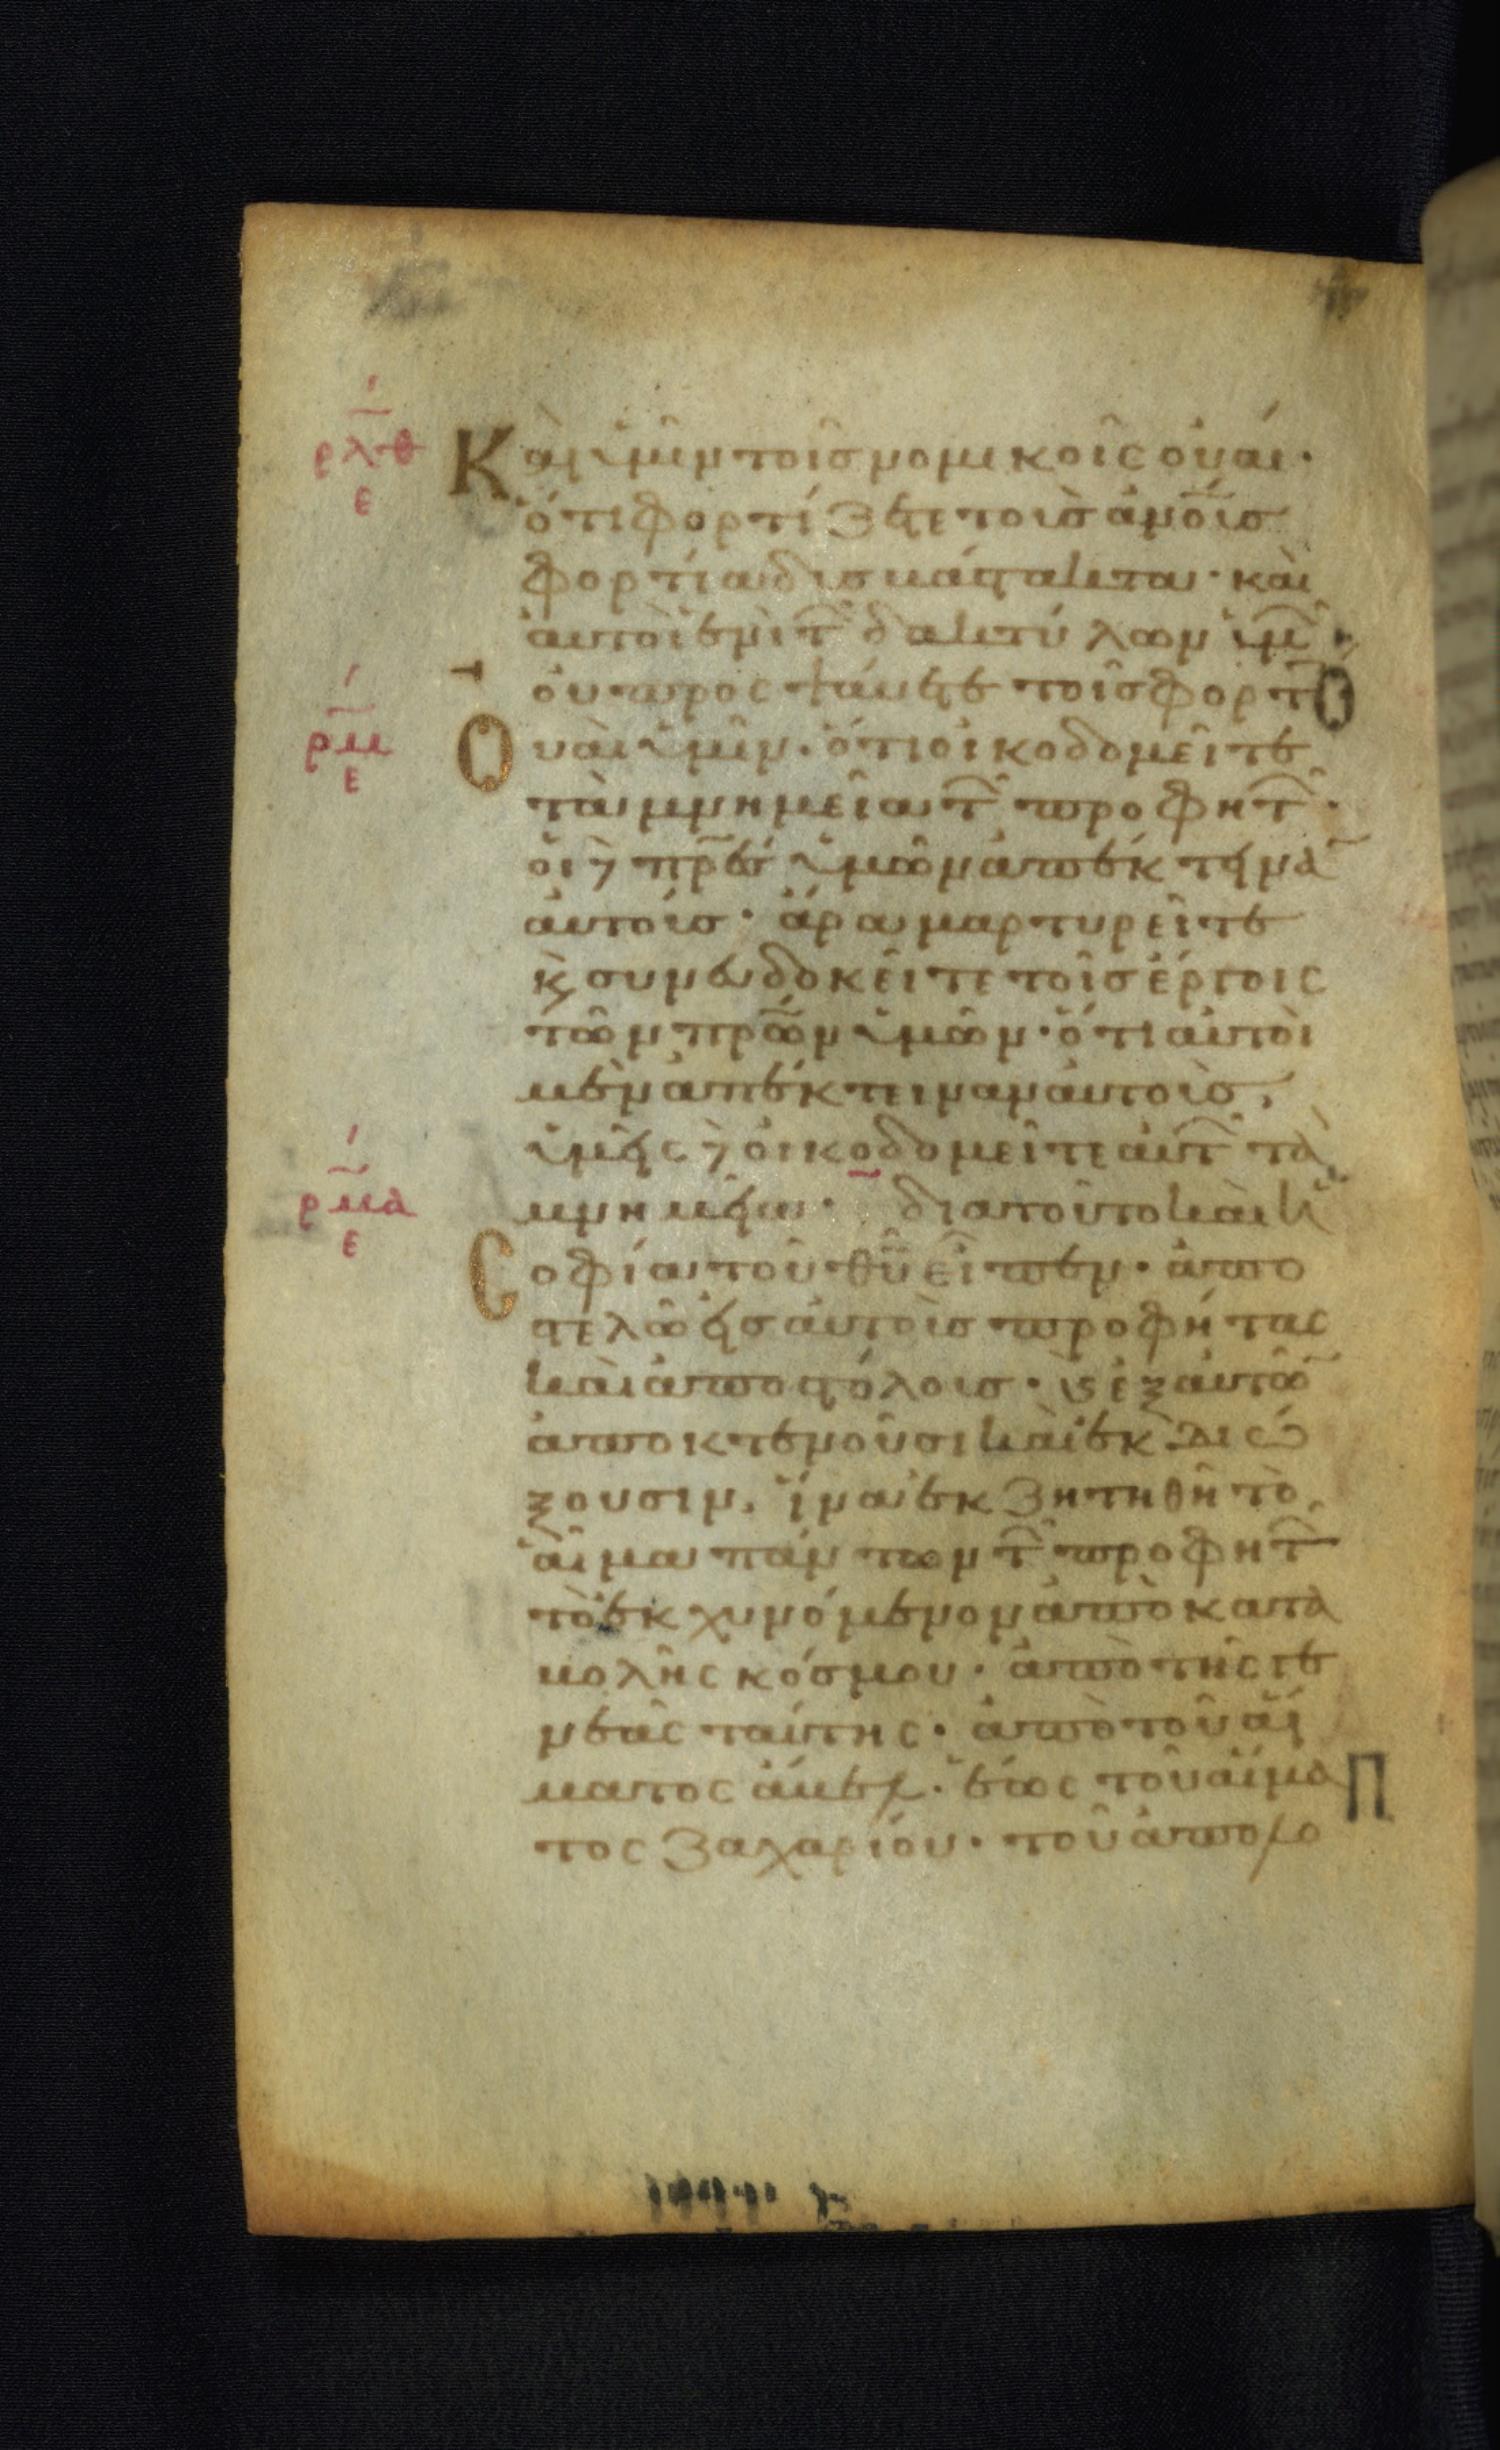 ρλθ
ε
Καὶ ὑμῖν τοῖς νομικοῖς οὐαί·
ὅτι φορτίζετε τοὺς ἀνο̅υς
φορτία δυσβάστακτα· καὶ
αὐτοὶ ἑνὶ τ̅ δακτύλων ὑμ̅
οὐ προσψάυετε τοῖς φορτ̅
ρμ
ε
Οὐαὶ ὑμῖν· ὅτι οἰκοδομεῖτε
τὰ μνημεῖα τ̅ προφητ̅·
οἱ δὲ πρ̅ες ὑμῶν ἀπέκτειναν
αὐτούς· ἄρα μαρτυρεῖτε
κ̀ συνευδοκεῖτε τοῖς ἔργοις
τῶν πρ̅ων ὑμῶν· ὅτι αὐτοὶ
μὲν ἀπέκτειναν αὐτούς,
ὑμεῖς δὲ οἰκοδομεῖτε αὐτ̅ τὰ
ρμα
ε
μνημεῖα· διατοῦτο καὶ ἡ
Σοφία τοῦ θ̅υ̅ εἶπεν· ἀπο
στελῶ εἰς αὐτοὺς προφήτας
καὶ ἀποστόλους· κ̀ ἐξ αὐτῶ̅
ἀποκτενοῦσι καὶ ἐκδιώ
ξουσιν, ἵνα ἐκζητηθῆ τὸ
αἷμα πάντων τ̅ προφητ̅
τὸ ἐκχυνόμενον ἀπὸ κατα
βολῆς κόσμου· ἀπὸ τῆς γε
νεᾶς ταύτης· ἀπὸ τοῦ αἵ
ματος ἄβελ· ἕως τοῦ αἵμα
τος Ζαχαρίου· τοῦ ἀπολο